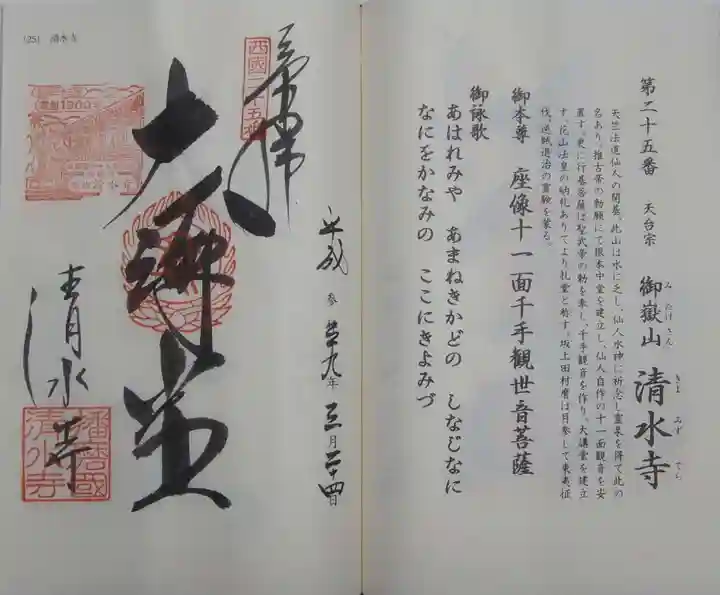 第二十五番 天台宗 御嶽山 清水寺
みたけさん きよみずでら
天竺法道仙人の開基。此山は水に乏し、仙人水神に祈念し霊泉を得て此の
名あり。推古帝の勅願にて根本中堂を建立し、仙人自作の十一面観音を安
置す。更に行基菩薩は聖武帝の勅を奉し、千手観音を作り、大講堂を建立
す。花山法皇の納札ありてより札堂と称す。坂上田村麿は月参して東夷征
伐、逆賊退治の霊験を蒙る。
御本尊 座像十一面千手観世音菩薩
御詠歌
あはれみや あまねきかどの しなじなに
なにをかなみの ここにきよみづ
(25) 清水寺
西國二十五番
奉拝
大講堂
平成 参 廿九年 三月 二十四日
清水寺
播磨國清水寺